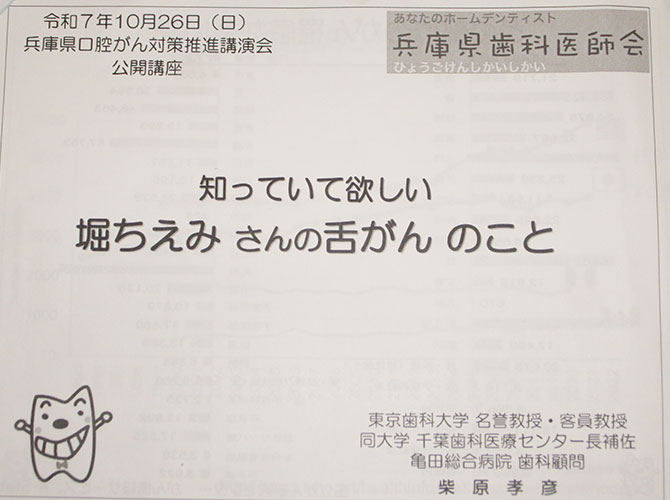 令和7年10月26日(日)
兵庫県口腔がん対策推進講演会
公開講座
あなたのホームデンティスト
兵庫県歯科医師会
ひょうごけんしかいしかい
知っていて欲しい
堀ちえみ さんの舌がん のこと
東京歯科大学 名誉教授・客員教授
同大学 千葉歯科医療センター長補佐
亀田総合病院 歯科顧問
柴原孝彦